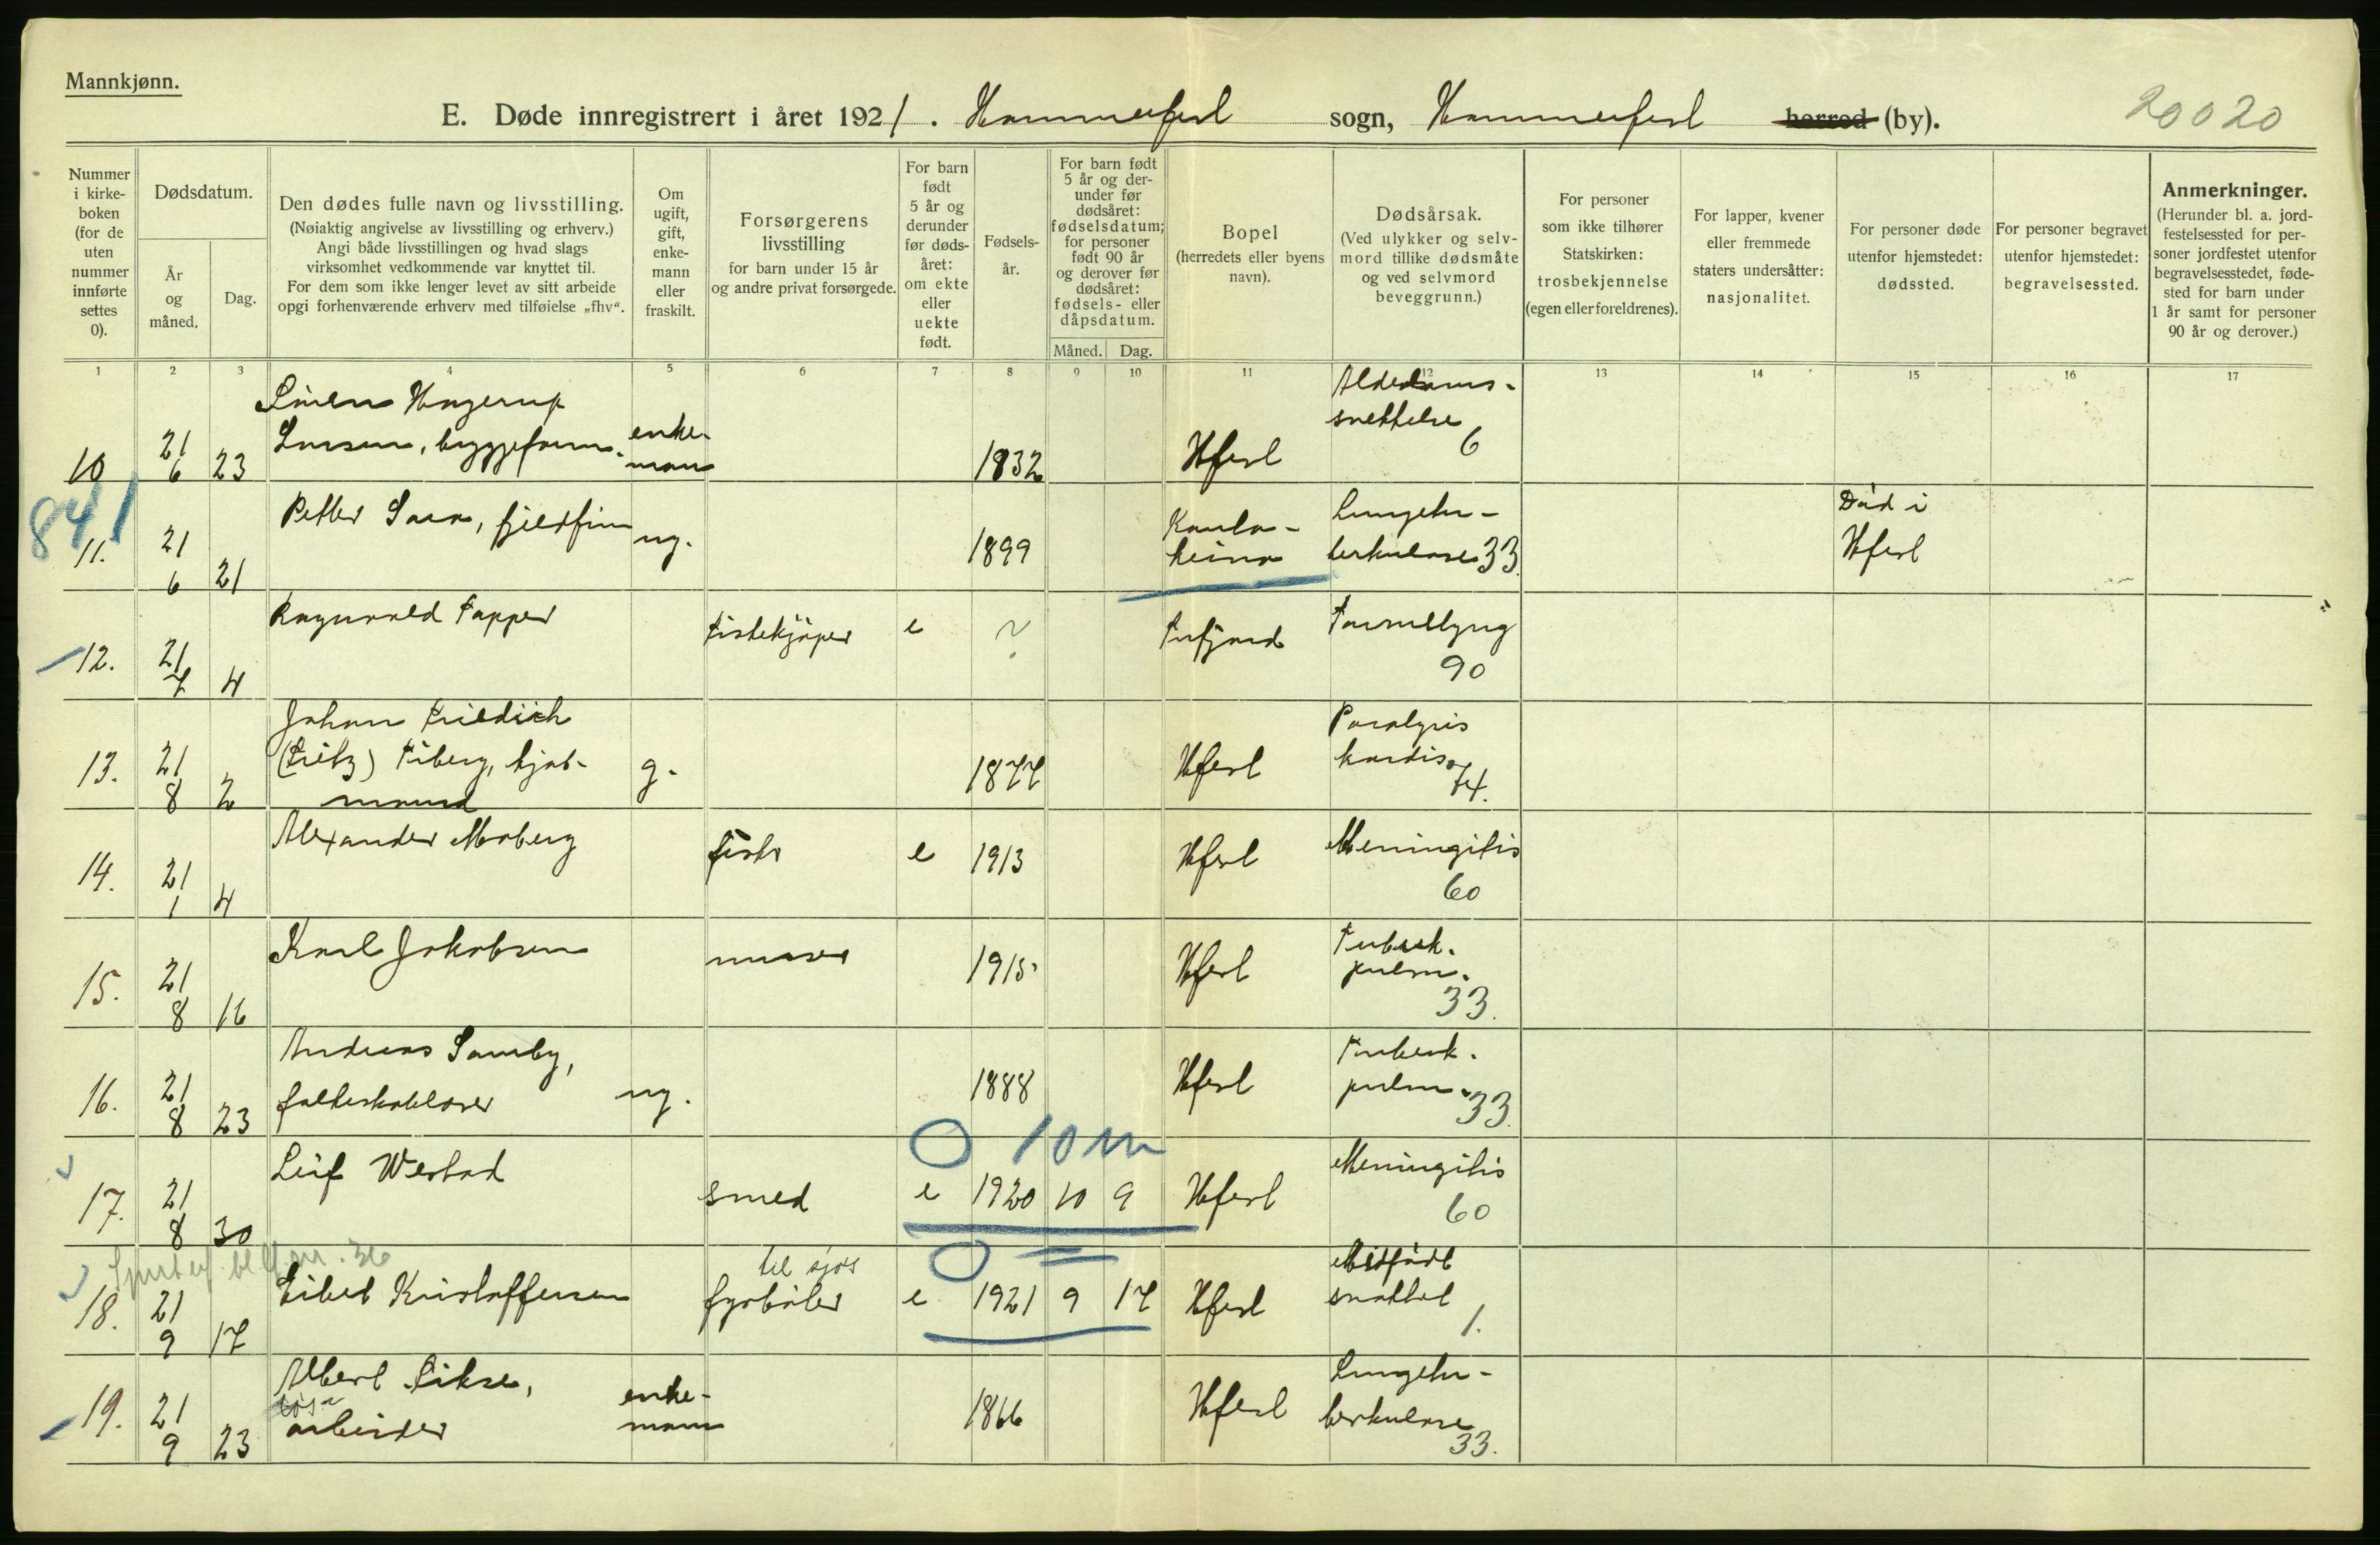 Mannkjønn.
E. Døde innregistrert i året 1921. Hammerfest sogn, Hammerfest herred (by).
20020
Nummer i kirke-boken (for de uten nummer innførte settes 0).
Dødsdatum.
År og måned.
Dag.
Den dødes fulle navn og livsstilling.
(Nøiaktig angivelse av livsstilling og erhverv.)
Angi både livsstillingen og hvad slags
virksomhet vedkommende var knyttet til.
For dem som ikke lenger levet av sitt arbeide
opgi forhenværende erhverv med tilføielse „fhv“.
Om ugift, gift, enke-mann eller fraskilt.
Forsørgerens livsstilling
for barn under 15 år
og andre privat forsørgede.
For barn født 5 år og derunder før døds-året: om ekte eller uekte født.
Fødsels-år.
For barn født 5 år og der-under før dødsåret: fødselsdatum; for personer født 90 år og derover før dødsåret: fødsels- eller dåpsdatum.
Måned. Dag.
Bopel
(herredets eller byens navn).
Dødsårsak.
(Ved ulykker og selv-mord tillike dødsmåte og ved selvmord beveggrunn.)
For personer som ikke tilhører Statskirken: trosbekjennelse (egen eller foreldrenes).
For lapper, kvener eller fremmede staters undersåtter: nasjonalitet.
For personer døde utenfor hjemstedet: dødssted.
For personer begravet utenfor hjemstedet: begravelsessted.
Anmerkninger.
(Herunder bl. a. jord-festelsessted for per-soner jordfestet utenfor begravelsesstedet, føde-sted for barn under 1 år samt for personer 90 år og derover.)
1 2 3 4 5 6 7 8 9 10 11 12 13 14 15 16 17
10 21 6 23 Sören Hagerup Larsen, byggeform. enke-mann 1832 Hfest Alderdoms-svekkelse 6
841
11. 21 6 21 Petter Sara, fjeldfinn ug. 1899 Kauto-keino Lungetu-berkulose 33. Död i Hfest
12. 21 7 4 Ragnvald Tapper fiskekjöper e ? Tufjord Tarmslyng 90
13. 21 8 2 Johan Friedrich (Fritz) Fiberg, kjøb-mand g. 1877 Hfest Paralysis kordis 74.
14. 21 1 4 Alexander Moberg fisker e 1913 Hfest Meningitis 60
15. 21 8 16 Karl Jakobsen murer 1915 Hfest Tuberk. pulm. 33.
16. 21 8 23 Andreas Samby, folkeskolelærer ug. 1888 Hfest Tuberk. pulm. 33.
0 10 m
17. 21 8 30 Leif Westad smed e 1920 10 9 Hfest Meningitis 60
0
18. 21 9 17 Eibet Kristoffersen fyrböter til sjös e 1921 9 17 Hfest Medfödt svakhet 1.
19. 21 9 23 Albert Eikse, løs-arbeider enke-mann 1866 Hfest Lungetu-berkulose 33.